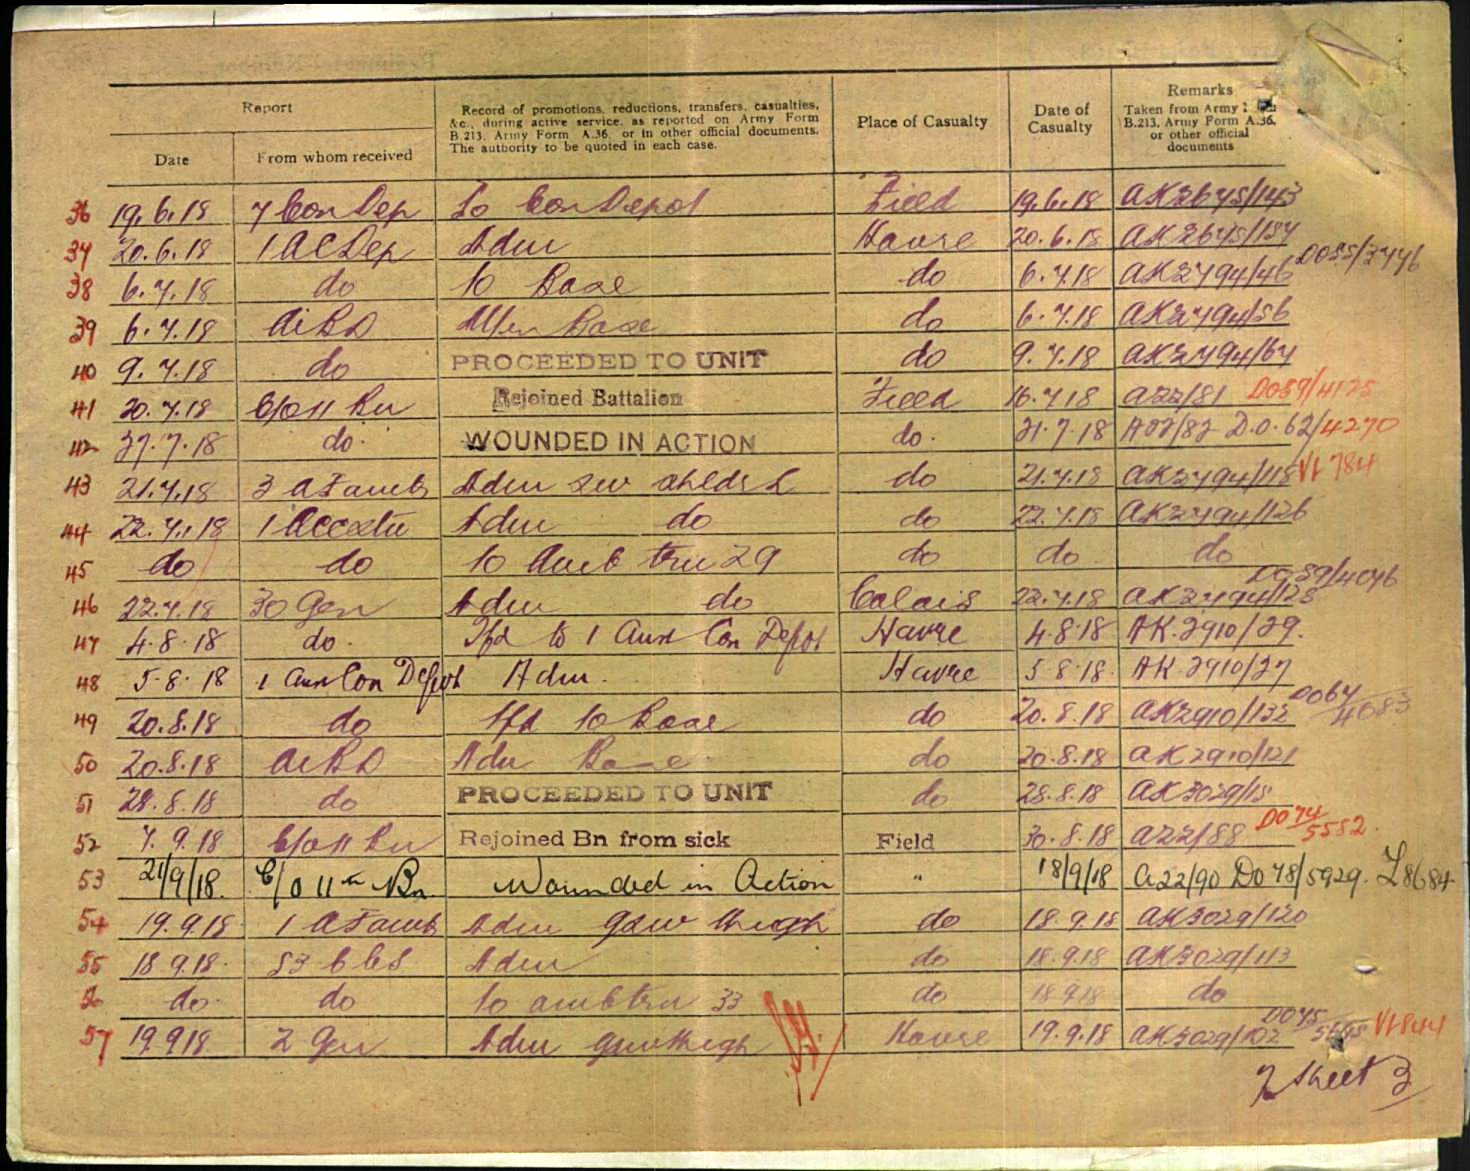 Report
Record of promotions, reductions, transfers, casualties,
&c., during active service, as reported on Army Form
B.213, Army Form A.36, or in other official documents.
The authority to be quoted in each case.
Place of Casualty
Date of
Casualty
Remarks
Taken from Army
B.213, Army Form A.36,
or other official
documents
Date From whom received
36 19.6.18 7 Con Dep to Con Depot Field 19.6.18 AK2645/143
37 20.6.18 1 AC Dep Adm Havre 20.6.18 AK2645/154
38 6.7.18 do to Base do 6.7.18 AK2794/46 DO55/3776
39 6.7.18 AIBD Base do 6.7.18 AK2794/56
40 9.7.18 do PROCEEDED TO UNIT do 9.7.18 AK2794/64
41 20.7.18 C/O 11 Bn Rejoined Battalion Field 16.7.18 A22/81 DO59/4125
42 27.7.18 do. WOUNDED IN ACTION do. 21.7.18 A22/82 D.O. 62/4270
43 21.7.18 3 A F amb Adm do 21.7.18 AK2794/118 V1784
44 22.7.18 1 Adm do do 22.7.18 AK2794/126
45 do do to Amb trn 29 do do do
46 22.7.18 30 Gen Adm do Calais 22.7.18 AK2794/128 DO59/4046
47 4.8.18 do. Tfd to 1 Aust Con Depot Havre 4.8.18 AK.2910/29.
48 5.8.18 1 Aus Con Depot Adm. Havre 5.8.18 AK.2910/27
49 20.8.18 do tfd to Base do 20.8.18 AK2910/132 DO64/4683
50 20.8.18 AIBD Adm Base do 20.8.18 AK2910/121
51 28.8.18 do PROCEEDED TO UNIT do 28.8.18 AK3029/15
52 7.9.18 C/O 11 Bn Rejoined Bn from sick Field 30.8.18 A22/88 DO74/5582
53 21/9/18. C/O 11th Bn. Wounded in Action " 18/9/18 A22/90 DO78/5929. Z8684
54 19.9.18 1 A F amb Adm GSW thigh do 18.9.18 AK3029/120
55 18.9.18. 53 CCS Adm do 18.9.18 AK3029/113
56 do. do to amb trn 33 do 18.9.18 do
57 19.9.18 2 Gen Adm GSW thigh Havre 19.9.18 AK3029/102 DO75 V1844
Sheet 3